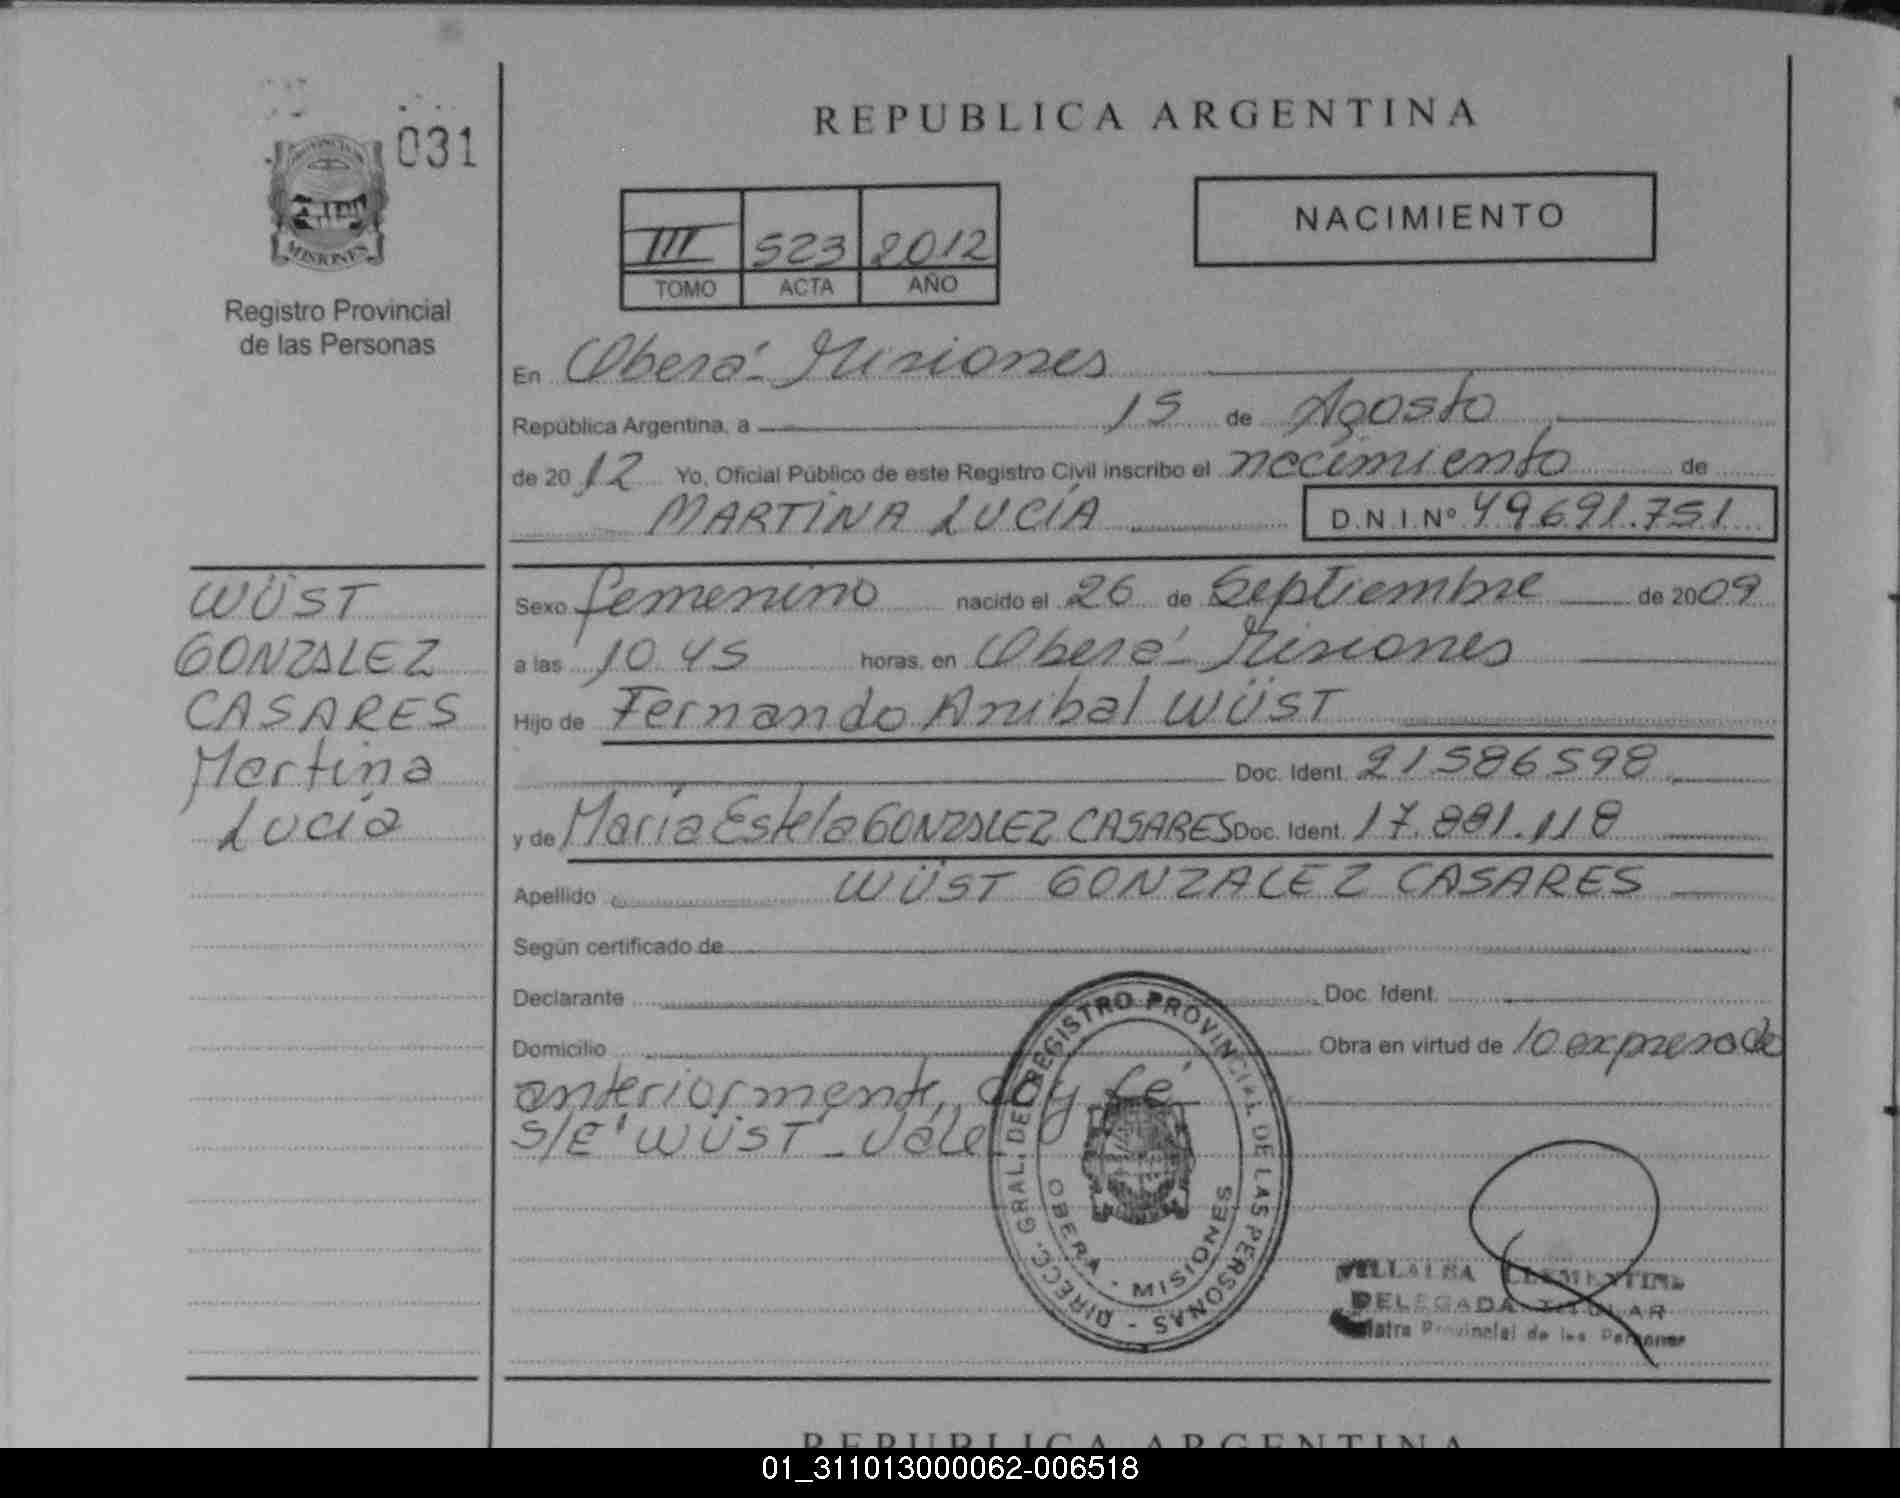 REPUBLICA ARGENTINA
031
MISIONES
Registro Provincial
de las Personas
III 523 2012
TOMO ACTA AÑO
NACIMIENTO
En Oberá - Misiones
República Argentina, a 15 de Agosto
de 2012 Yo, Oficial Público de este Registro Civil inscribo el nacimiento de
MARTINA LUCÍA D.N.I.Nº 49691.751
WÜST
GONZALEZ
CASARES
Martina
Lucía
Sexo femenino nacido el 26 de Septiembre de 2009
a las 10 45 horas, en Oberá - Misiones
Hijo de Fernando Anibal WÜST
Doc. Ident. 21586598
y de María Estela GONZALEZ CASARES Doc. Ident. 17.881.118
Apellido WÜST GONZALEZ CASARES
Según certificado de
Declarante Doc. Ident.
Domicilio Obra en virtud de lo expresado
anteriormente, doy fé
S/E "WÜST" - Vale
DIRECC. GRAL. DEL REGISTRO PROVINCIAL DE LAS PERSONAS -
OBERA - MISIONES
VILLALBA CLEMENTINA
DELEGADA TITULAR
Provincial de las Personas
REPUBLICA ARGENTINA
01_311013000062-006518